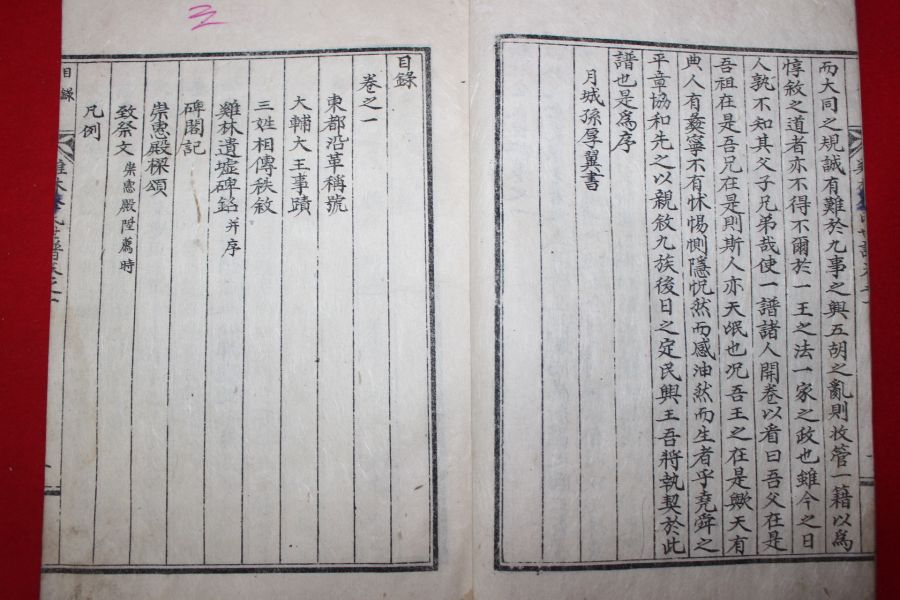 而大同之規誠有難於九事之興五胡之亂則收管一籍以爲
惇敘之道者亦不得不爾於一王之法一家之政也雖今之日
人孰不知其父子兄弟哉使一譜諸人開卷以看曰吾父在是
吾祖在是吾兄在是則斯人亦天氓也况吾王之在是歟天有
典人有彝寧不有怵惕惻隱怳然而感油然而生者乎堯舜之
平章協和先之以親敘九族後日之定民興王吾將執契於此
譜也是爲序
月城孫厚翼書
目錄
卷之一
東都沿革稱號
大輔大王事蹟
三姓相傳秩敘
雞林遺墟碑銘 并序
碑閣記
崇惠殿樑頌
致祭文 崇惠殿陞薦時
凡例
目錄